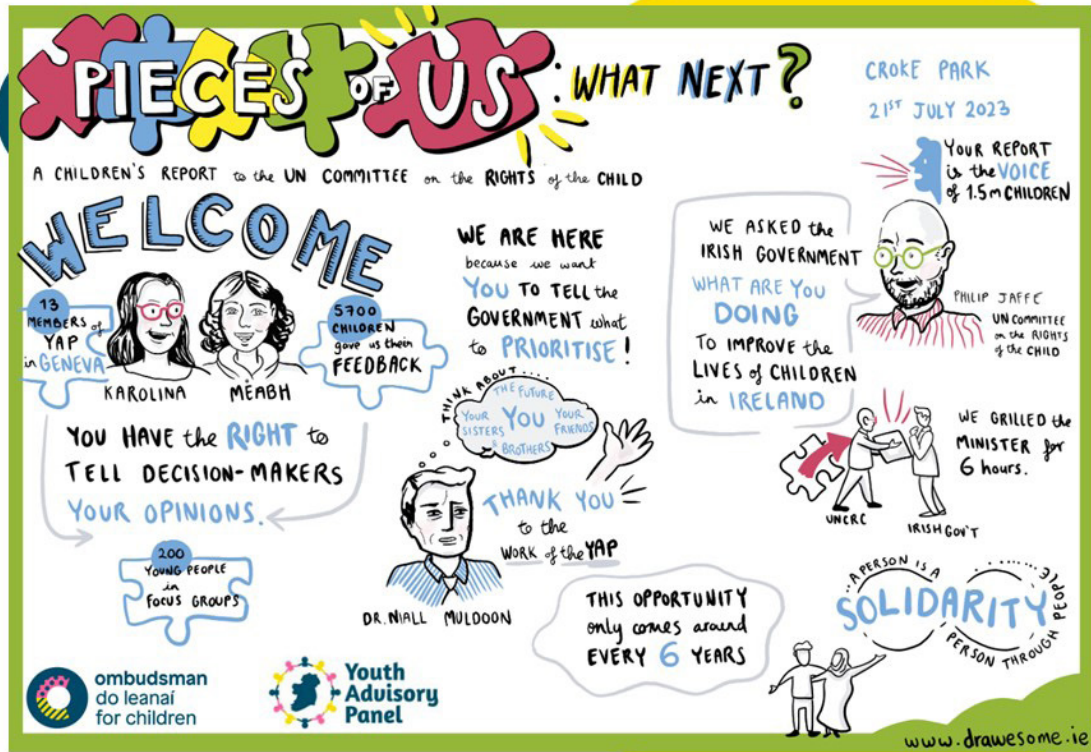 PIECES OF US: WHAT NEXT?
A CHILDREN'S REPORT to the UN COMMITTEE on the RIGHTS of the CHILD
CROKE PARK
21ST JULY 2023
WELCOME
13
MEMBERS of
YAP
in GENEVA
KAROLINA
MEABH
5700
CHILDREN
gave us their
FEEDBACK
YOU HAVE the RIGHT to
TELL DECISION-MAKERS
YOUR OPINIONS.
200
YOUNG PEOPLE
in
FOCUS GROUPS
WE ARE HERE
because we want
YOU TO TELL the
GOVERNMENT what
to PRIORITISE!
THINK ABOUT....
THE FUTURE
YOUR SISTERS & BROTHERS
YOU
YOUR FRIENDS
THANK YOU
to the
WORK of the YAP
DR. NIALL MULDOON
THIS OPPORTUNITY
only comes around
EVERY 6 YEARS
YOUR REPORT
is the VOICE
of 1.5m CHILDREN
WE ASKED the
IRISH GOVERNMENT
WHAT ARE YOU
DOING
TO IMPROVE the
LIVES of CHILDREN
in IRELAND
PHILIP JAFFE
UN COMMITTEE
on the RIGHTS
of the CHILD
WE GRILLED the
MINISTER for
6 hours.
UNCRC
IRISH GOV'T
...A PERSON IS A
SOLIDARITY
PERSON THROUGH PEOPLE
ombudsman
do leanaí
for children
Youth
Advisory
Panel
www.drawesome.ie